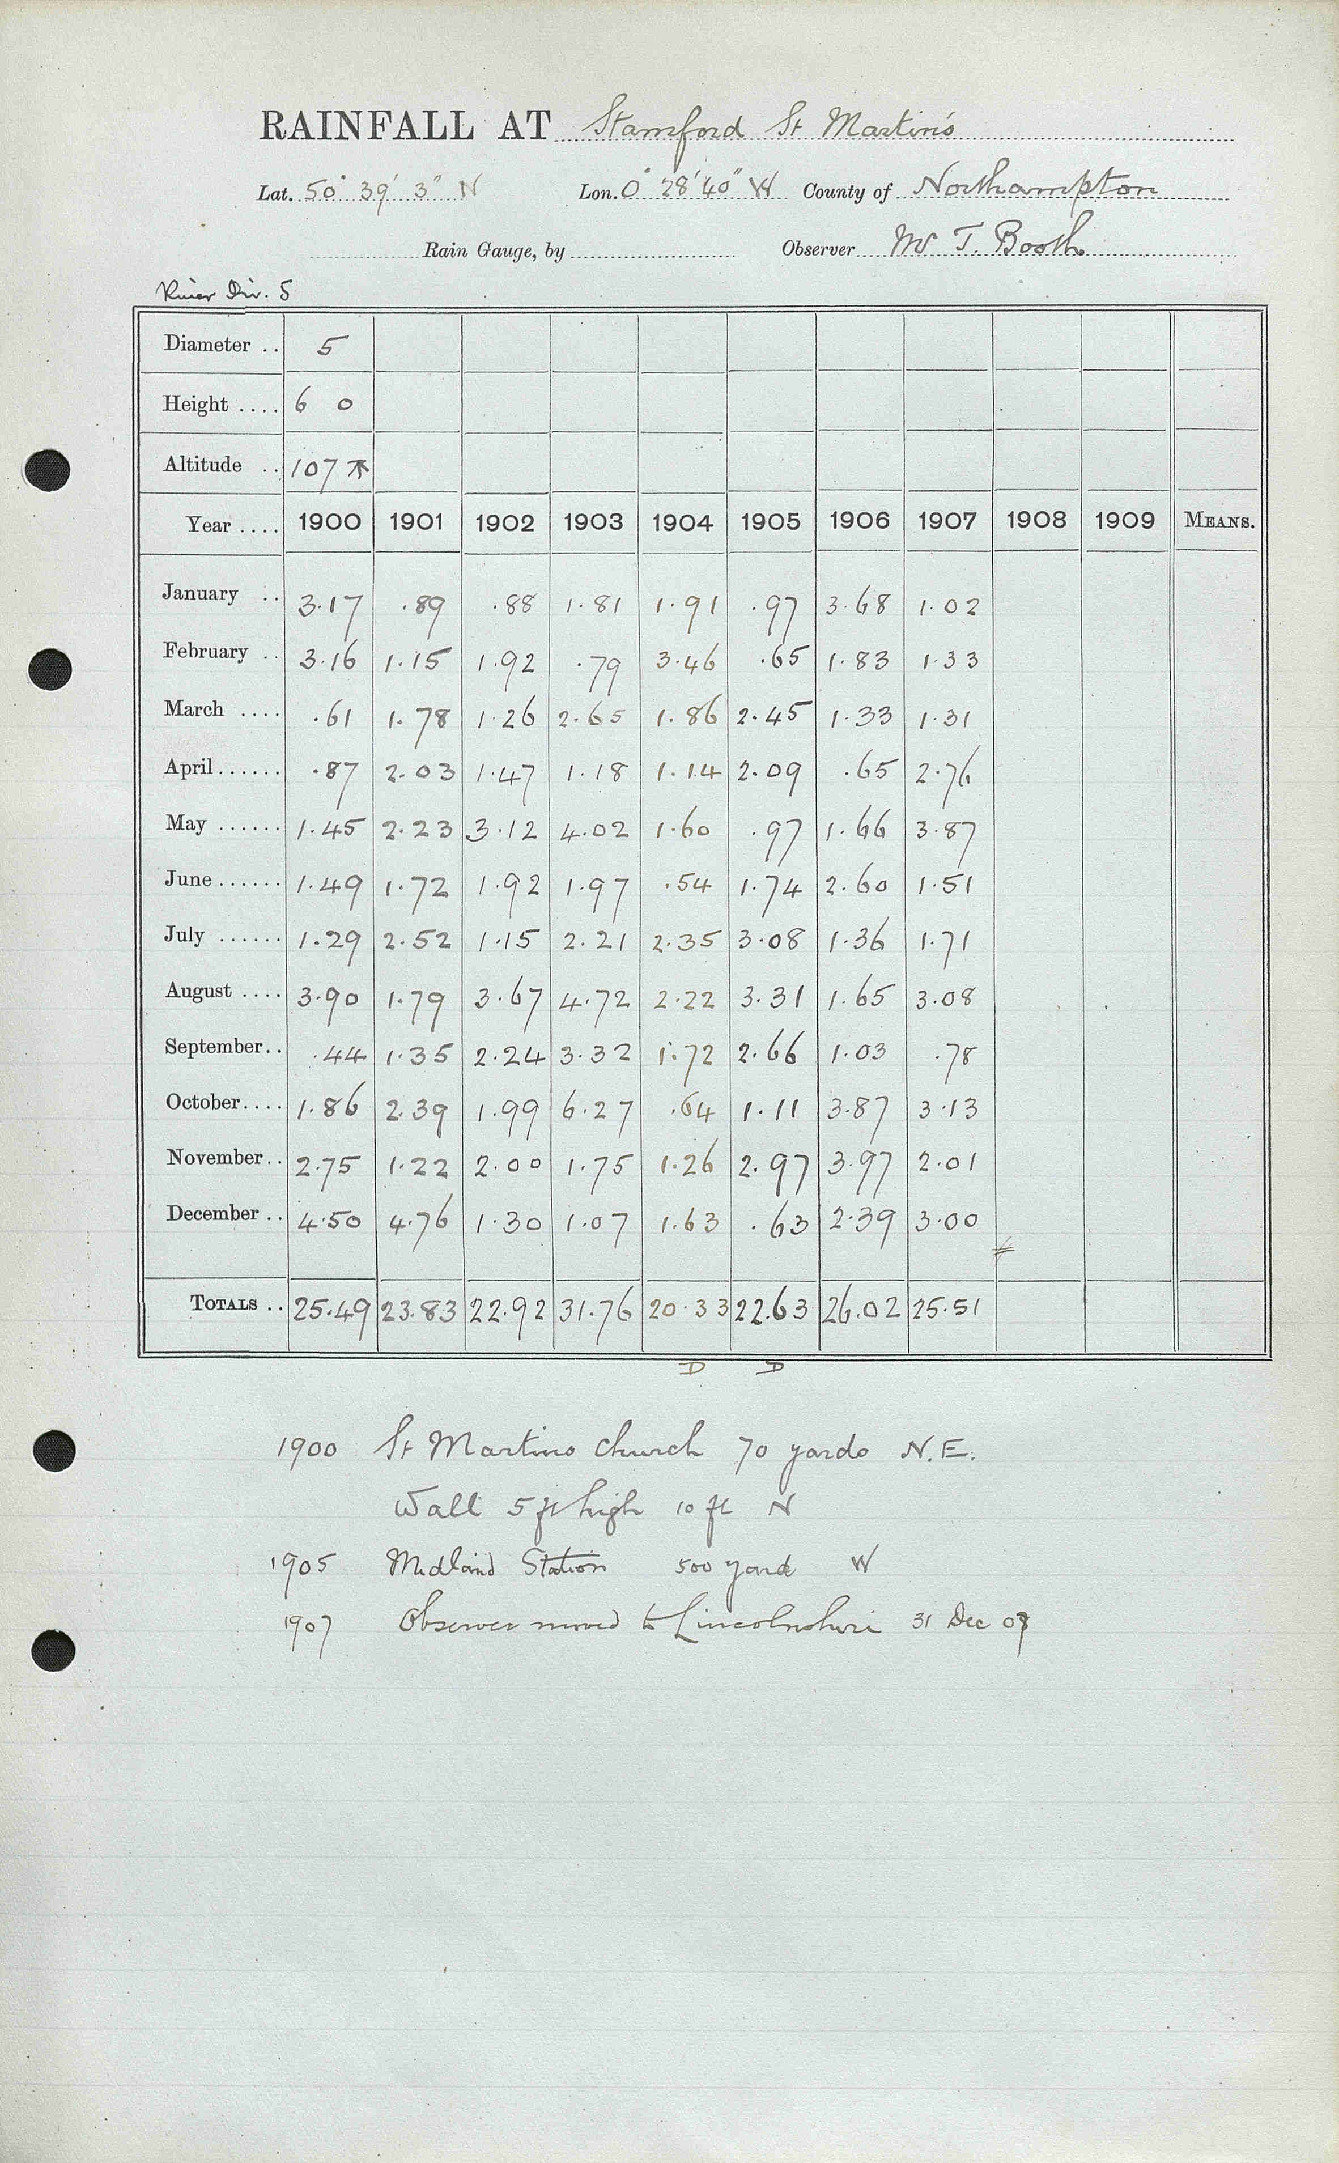 RAINFALL AT Stamford St Martin's
Lat. 50° 39' 3" N Lon. 0° 28' 40" W County of Northampton
Rain Gauge, by Observer Mr T. Booth
River Div. 5
Diameter .. 5
Height .... 6 0
Altitude .. 107
Year .... 1900 1901 1902 1903 1904 1905 1906 1907 1908 1909 MEANS.
January .. 3.17 .89 .88 1.81 1.91 .97 3.68 1.02
February .. 3.16 1.15 1.92 .79 3.46 .65 1.83 1.33
March .... .61 1.78 1.26 2.65 1.86 2.45 1.33 1.31
April...... .87 2.03 1.47 1.18 1.14 2.09 .65 2.76
May ...... 1.45 2.23 3.12 4.02 1.60 .97 1.66 3.87
June...... 1.49 1.72 1.92 1.97 .54 1.74 2.60 1.51
July ...... 1.29 2.52 1.15 2.21 2.35 3.08 1.36 1.71
August .... 3.90 1.79 3.67 4.72 2.22 3.31 1.65 3.08
September.. .44 1.35 2.24 3.32 1.72 2.66 1.03 .78
October.... 1.86 2.39 1.99 6.27 .64 1.11 3.87 3.13
November.. 2.75 1.22 2.00 1.75 1.26 2.97 3.97 2.01
December .. 4.50 4.76 1.30 1.07 1.63 .63 2.39 3.00
TOTALS .. 25.49 23.83 22.92 31.76 20.33 22.63 26.02 25.51
D D
1900 St Martins church 70 yards N.E.
Wall 5 ft high 10 ft N
1905 Midland Station 500 yard W
1907 Observer moved to Lincolnshire 31 Dec 07